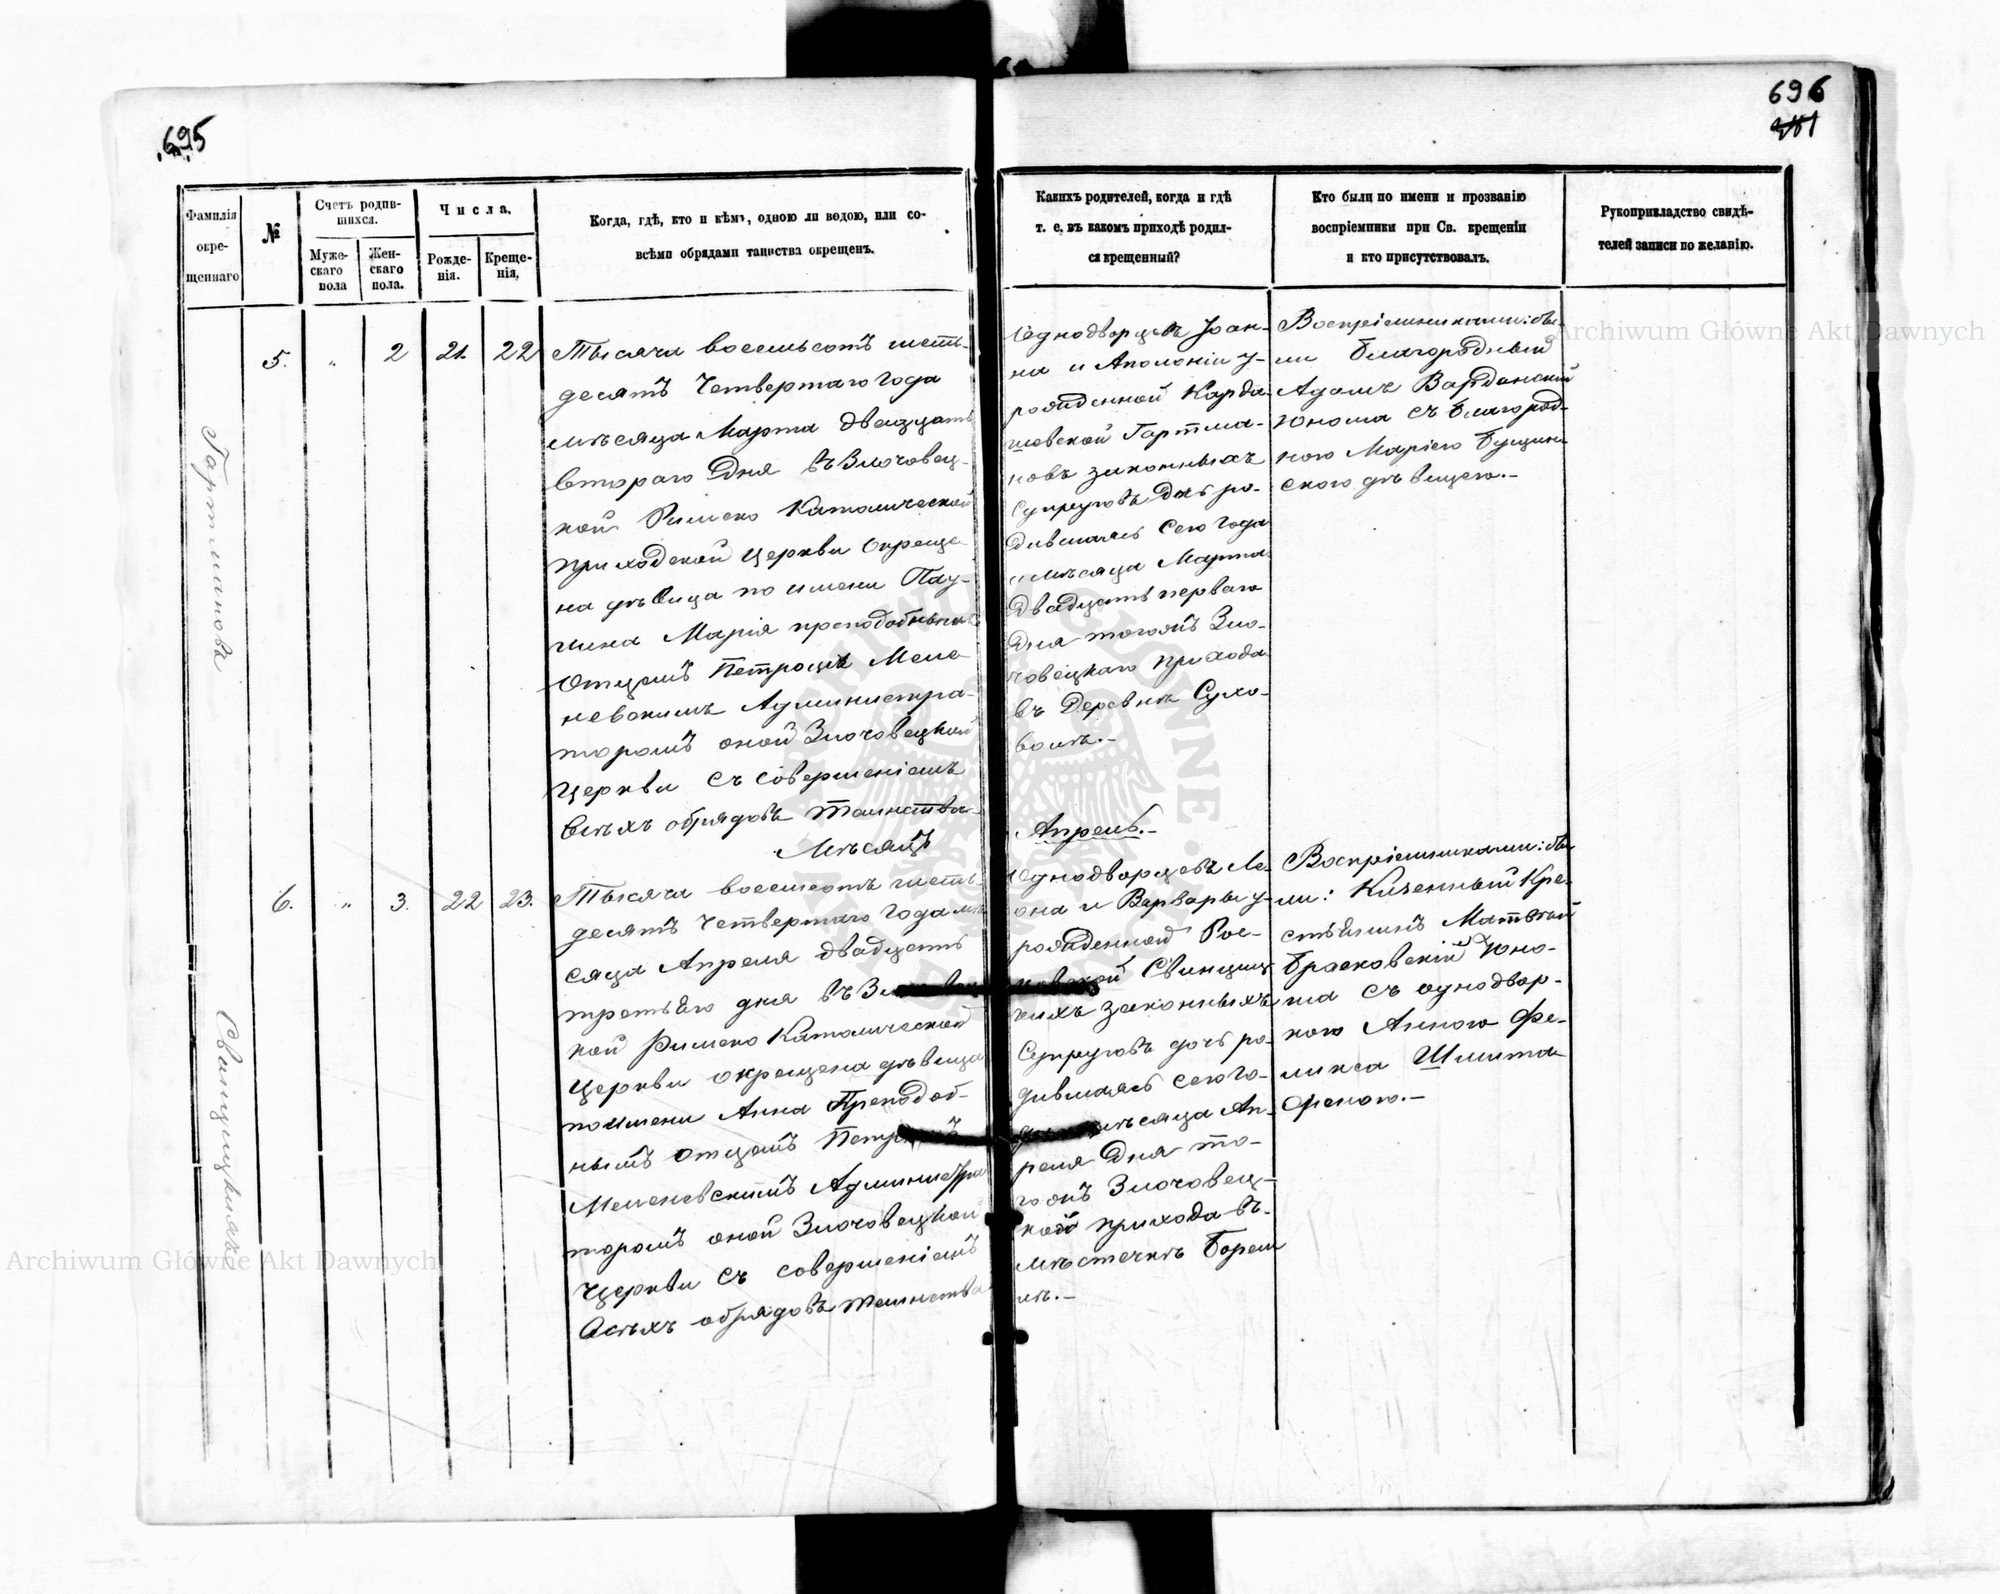 695
696
Фамилія окре-щеннаго
№
Счетъ родив-шихся.
Муже-скаго пола
Жен-скаго пола.
Числа.
Рожде-нія.
Креще-нія,
Когда, гдѣ, кто и кѣмъ, одною ли водою, или со-
всѣми обрядами таинства окрещенъ.
Какихъ родителей, когда и гдѣ
т. е. въ какомъ приходѣ родил-
ся крещенный?
Кто были по имени и прозванію
воспріемники при Св. крещеніи
и кто присутствовалъ.
Рукоприкладство свидѣ-
телей записи по желанію.
Гартмановъ
5.
"
2
21.
22
Тысяча восемьсотъ шесть-
десятъ Четвертаго Года
мѣсяца Марта двадцать
втораго Дня въ Злочовец-
кой Римско Католической
приходской Церкви Окреще-
на дѣвица по имени Пау-
лина Марія преподобнымъ
Отцемъ Петромъ Меле-
невскимъ Администра-
торомъ оной Злочовецкой
Церкви съ совершеніемъ
всѣхъ обрядовъ таинства
Мѣсяцъ
Однодворцевъ Іоан-
на и Аполоніи у-
рожденной Карда-
шевской Гартма-
новъ законныхъ
Супруговъ дочь ро-
дившаяся сего Года
и мѣсяца Марта
двадцать перваго
Дня тогожъ Зло-
човецкаго прихода
въ Деревнѣ Сухо-
волѣ.-
Воспріемниками: бы-
ли благородный
Адамъ
Юноша съ благород-
ною Маріею
дѣвицею.-
Апрель.-
Свинцицкихъ
6.
"
3.
22
23.
Тысяча восемьсотъ шесть-
десятъ Четвертаго Года мѣ-
сяца Апреля двадцать
третьяго дня въ
кой Римско Католической
Церкви окрещена дѣвица
по имени Анна Преподоб-
нымъ Отцемъ
Меленевскимъ Администра
торомъ оной Злочовецкой
Церкви съ совершеніемъ
всѣхъ обрядовъ таинства
Однодворцевъ Ле-
она и Варвары у-
рожденной
законныхъ
Супруговъ дочь ро-
дившаяся сего Го-
мѣсяца Ап-
реля Дня то-
гожъ Злочовец-
кой прихода въ
мѣстечкѣ Боре
лѣ.-
Воспріемниками: бы
ли: Казенный Кре-
стьянинъ Матвѣй
Юно-
ша съ однодвор-
кою Анною Фе-
ликса
Archiwum Główne Akt Dawnych
Archiwum Główne Akt Dawnych